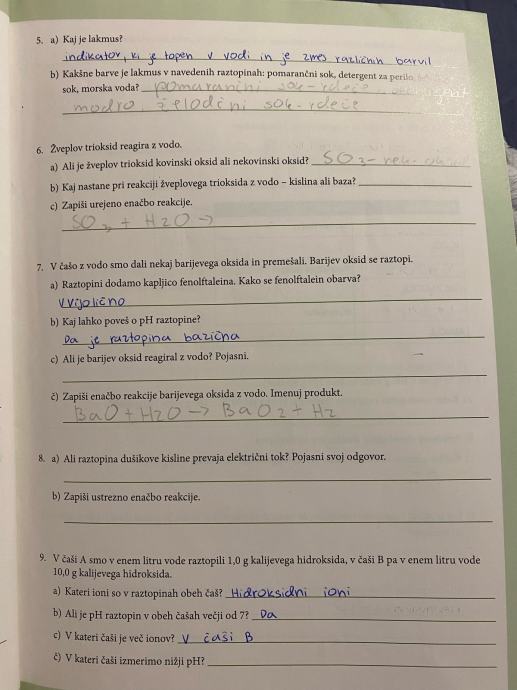 5. a) Kaj je lakmus?
indikator, ki je topen v vodi in je zmes različnih barvil
b) Kakšne barve je lakmus v navedenih raztopinah: pomarančni sok, detergent za perilo,
sok, morska voda? pomarančni sok - rdeče,
modro, želodčni sok - rdeče
6. Žveplov trioksid reagira z vodo.
a) Ali je žveplov trioksid kovinski oksid ali nekovinski oksid? SO3 - nek. oksid
b) Kaj nastane pri reakciji žveplovega trioksida z vodo – kislina ali baza?
c) Zapiši urejeno enačbo reakcije.
SO3 + H2O →
7. V čašo z vodo smo dali nekaj barijevega oksida in premešali. Barijev oksid se raztopi.
a) Raztopini dodamo kapljico fenolftaleina. Kako se fenolftalein obarva?
Vvijolično
b) Kaj lahko poveš o pH raztopine?
Da je raztopina bazična
c) Ali je barijev oksid reagiral z vodo? Pojasni.
č) Zapiši enačbo reakcije barijevega oksida z vodo. Imenuj produkt.
BaO + H2O → BaO2 + H2
8. a) Ali raztopina dušikove kisline prevaja električni tok? Pojasni svoj odgovor.
b) Zapiši ustrezno enačbo reakcije.
9. V čaši A smo v enem litru vode raztopili 1,0 g kalijevega hidroksida, v čaši B pa v enem litru vode
10,0 g kalijevega hidroksida.
a) Kateri ioni so v raztopinah obeh čaš? Hidroksidni ioni
b) Ali je pH raztopin v obeh čašah večji od 7? Da
c) V kateri čaši je več ionov? V čaši B
č) V kateri čaši izmerimo nižji pH?